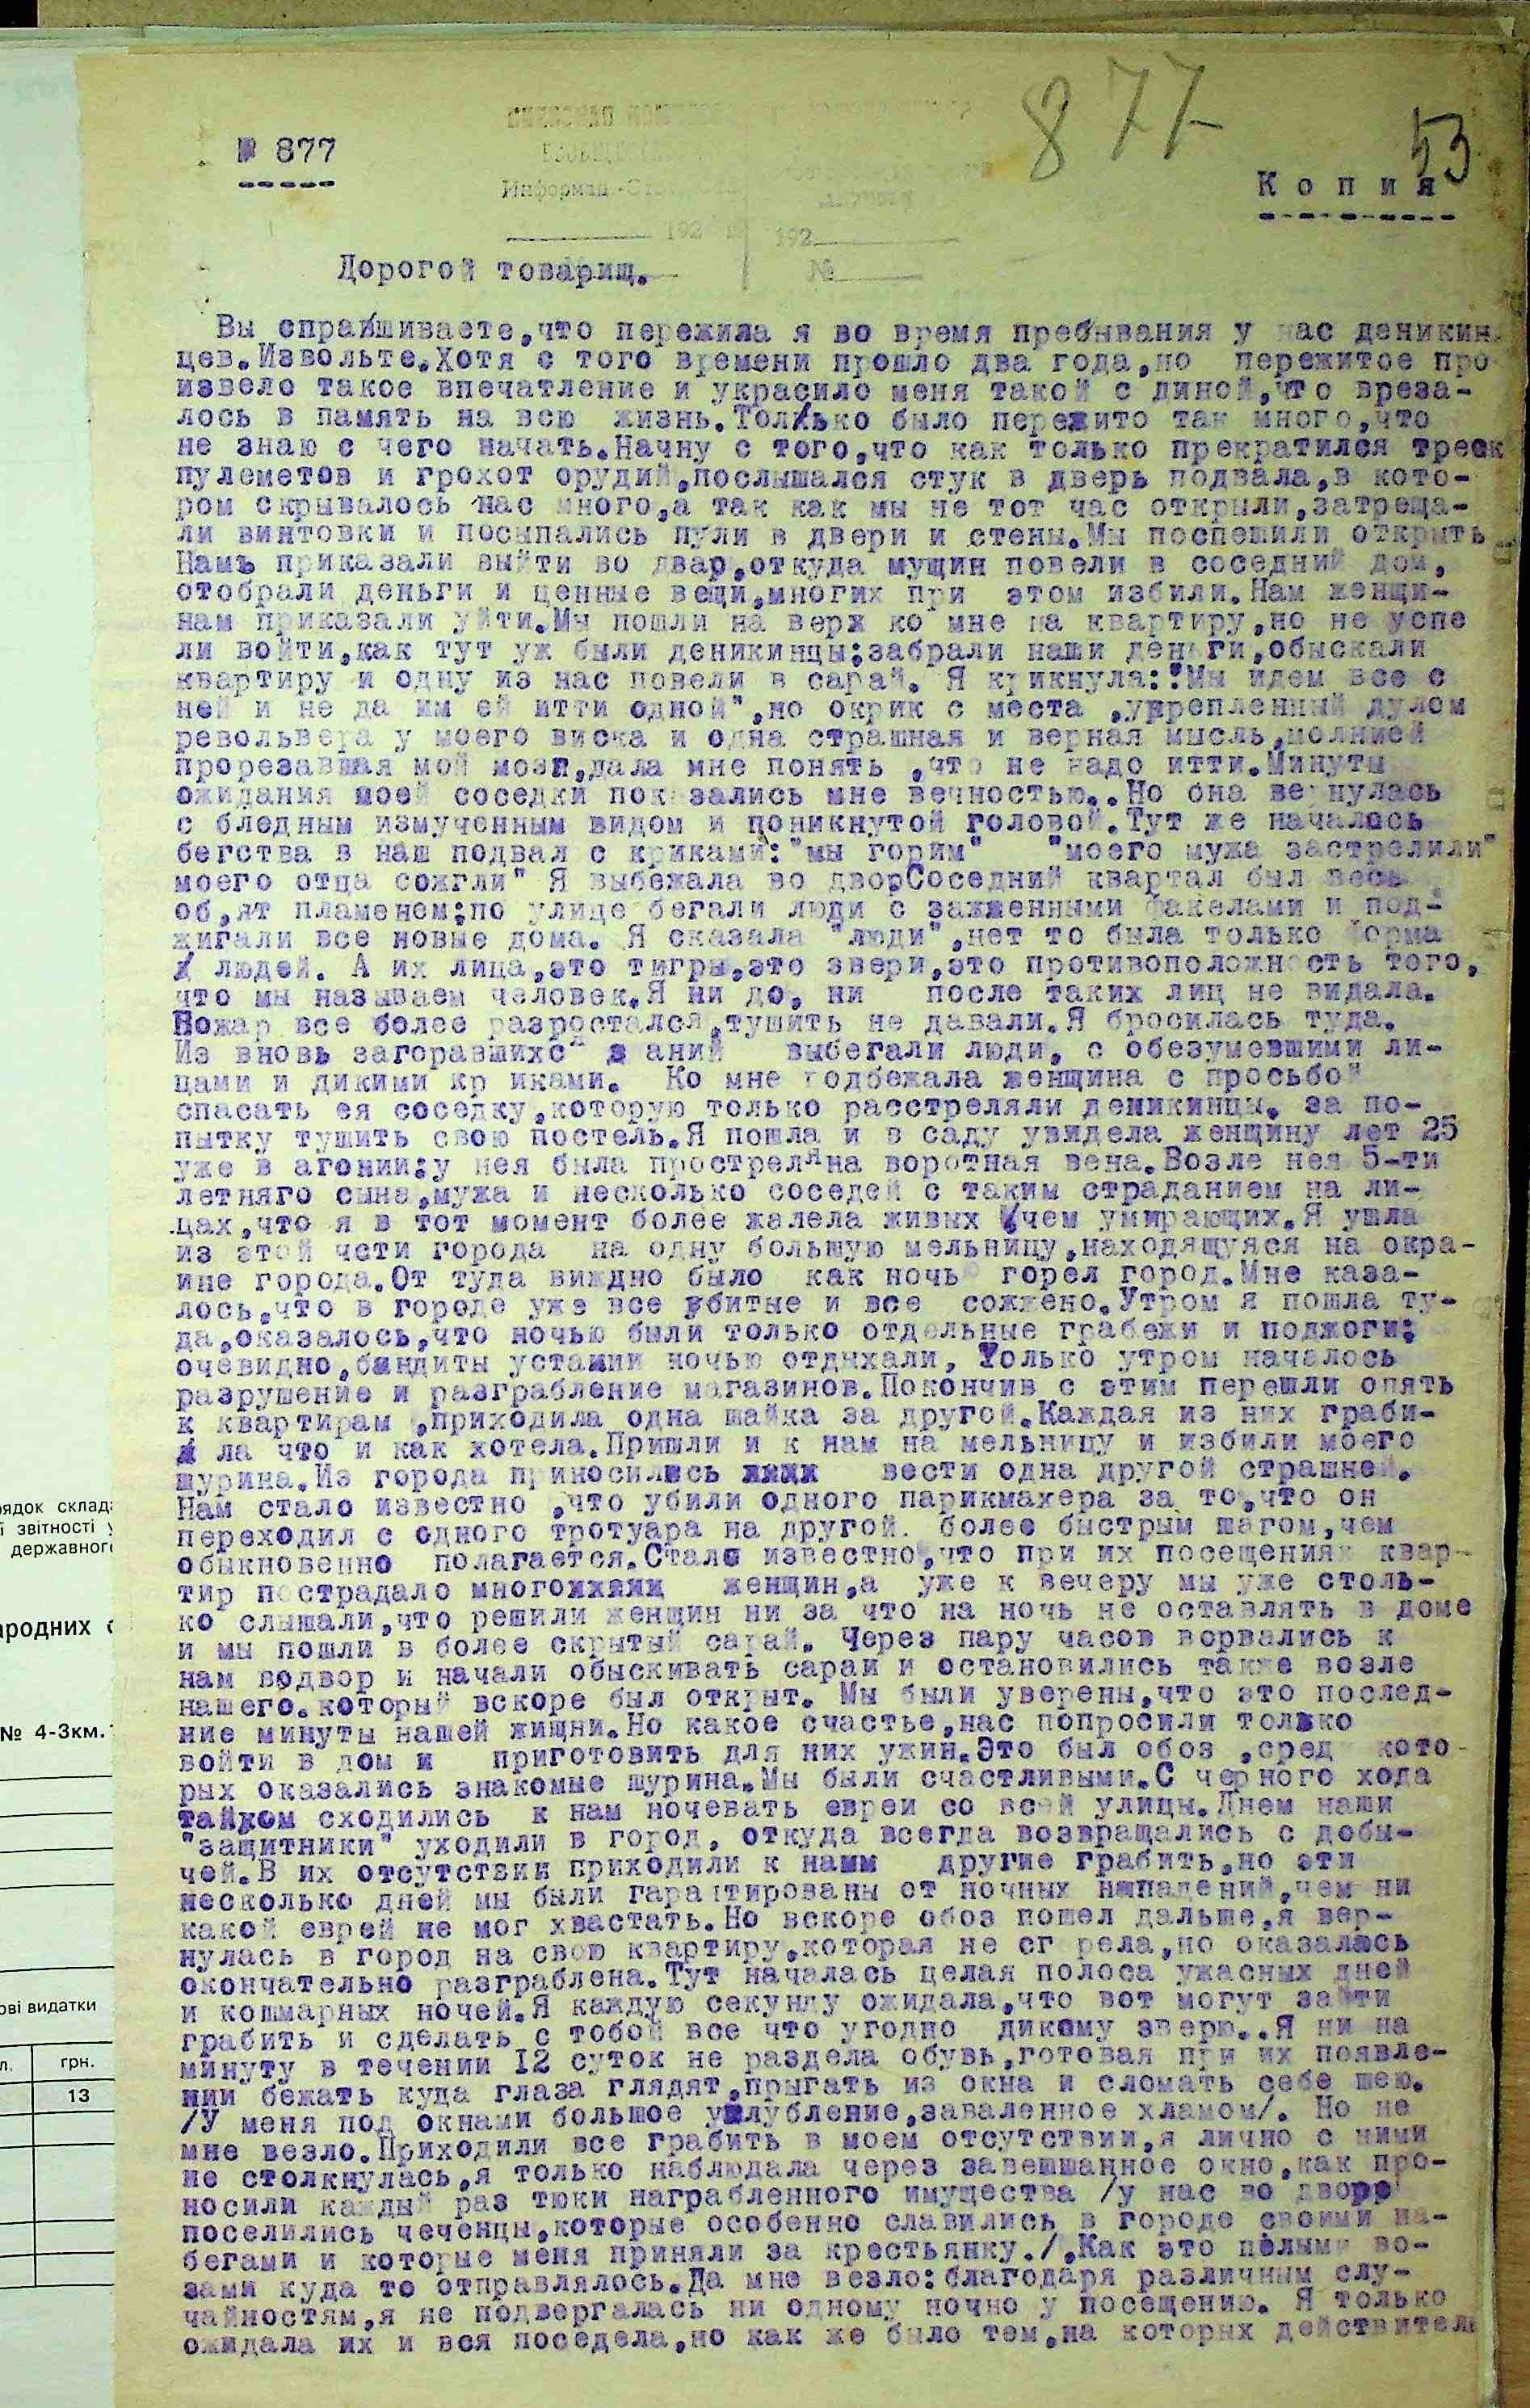 877
53
№ 877
Информац.-Ст
К о п и я
192
192
№
Дорогой товарищ.
Вы спрашиваете,что пережила я во время пребывания у нас деникин
цев.Извольте.Хотя с того времени прошло два года,но пережитое про
извело такое впечатление и украсило меня такой с диной,что вреза-
лось в память на всю жизнь.Только было пережито так много,что
не знаю с чего начать.Начну с того,что как только прекратился треск
пулеметов и грохот орудий,послышался стук в дверь подвала,в кото-
ром скрывалось нас много,а так как мы не тот час открыли,затреща-
ли винтовки и посыпались пули в двери и стены.Мы поспешили открыть
Намъ приказали выйти во двар,откуда мущин повели в соседний дом,
отобрали деньги и ценные вещи,многих при этом избили.Нам женщи-
нам приказали уйти.Мы пошли на верх ко мне на квартиру,но не успе
ли войти,как тут уж были деникинцы;забрали наши деньги,обыскали
квартиру и одну из нас повели в сарай. Я крикнула:"Мы идем все с
ней и не да им ей итти одной",но окрик с места ,укрепленный дулом
револьвера у моего виска и одна страшная и верная мысль,молнией
прорезавшая мой мозг,дала мне понять ,что не надо итти.Минуты
ожидания моей соседки показались мне вечностью..Но она вернулась
с бледным измученным видом и поникнутой головой.Тут же началось
бегства в наш подвал с криками:"мы горим" "моего мужа застрелили"
моего отца сожгли" Я выбежала во дворСоседний квартал был весь
об,ят пламенем;по улице бегали люди с зажженными факелами и под-
жигали все новые дома. Я сказала "люди",нет то была только форма
людей. А их лица,это тигры,это звери,это противоположность того,
что мы называем человек.Я ни до, ни после таких лиц не видала.
Пожар все более разростался,тушить не давали.Я бросилась туда.
Из вновь загоравшихс я аний выбегали люди, с обезумевшими ли-
цами и дикими кр иками. Ко мне подбежала женщина с просьбой
спасать ея соседку,которую только расстреляли деникинцы, за по-
пытку тушить свою постель.Я пошла и в саду увидела женщину лет 25
уже в агонии:у нея была прострелена воротная вена.Возле нея 5-ти
летняго сына,мужа и несколько соседей с таким страданием на ли-
цах,что я в тот момент более жалела живых чем умирающих.Я ушла
из этой чсти города на одну большую мельницу,находящуяся на окра-
ине города.От туда виждно было как ночь горел город.Мне каза-
лось,что в городе уже все убитые и все сожжено.Утром я пошла ту-
да,оказалось,что ночью были только отдельные грабежи и поджоги;
очевидно,бандиты уставши ночью отдыхали, Только утром началось
разрушение и разграбление магазинов.Покончив с этим перешли опять
к квартирам ,приходила одна шайка за другой.Каждая из них граби-
ла что и как хотела.Пришли и к нам на мельницу и избили моего
шурина.Из города приносились вести одна другой страшней.
Нам стало известно ,что убили одного парикмахера за то,что он
переходил с одного тротуара на другой. более быстрым шагом,чем
обыкновенно полагается.Стало известно,что при их посещениях квар-
тир пострадало много женщин,а уже к вечеру мы уже столь-
ко слышали,что решили женщин ни за что на ночь не оставлять в доме
и мы пошли в более скрытый сарай. Через пару часов ворвались к
нам водвор и начали обыскивать сараи и остановились также возле
нашего.который вскоре был открыт. Мы были уверены,что это послед-
ние минуты нашей жищни.Но какое счастье,нас попросили только
войти в дом и приготовить для них ужин.Это был обоз ,сред кото-
рых оказались знакомые шурина.Мы были счастливыми.С черного хода
тайком сходились к нам ночевать евреи со всей улицы.Днем наши
"защитники" уходили в город, откуда всегда возвращались с добы-
чей.В их отсутствии приходили к нам другие грабить,но эти
несколько дней мы были гарантированы от ночных нападений,чем ни
какой еврей не мог хвастать.Но вскоре обоз пошел дальше,я вер-
нулась в город на свою квартиру,которая не сг рела,но оказалась
окончательно разграблена.Тут началась целая полоса ужасных дней
и кошмарных ночей.Я каждую секунду ожидала,что вот могут зайти
грабить и сделать с тобой все что угодно дикому зверю..Я ни на
минуту в течении 12 суток не раздела обувь,готовая при их появле-
нии бежать куда глаза глядят,прыгать из окна и сломать себе шею.
/У меня под окнами большое углубление,заваленное хламом/. Но не
мне везло.Приходили все грабить в моем отсутствии,я лично с ними
не столкнулась,я только наблюдала через завешшанное окно,как про-
носили каждый раз тюки награбленного имущества /у нас во дворр
поселились чеченцы,которые особенно славились в городе своими на-
бегами и которые меня приняли за крестьянку./.Как это целыми во-
зами куда то отправлялось.Да мне везло:благодаря различным слу-
чайностям,я не подвергалась ни одному ночно у посещению. Я только
ожидала их и вся поседела,но как же было тем,на которых действител
рядок склад
і звітності у
державног
ародних с
№ 4-3км.
ові видатки
л.
грн.
13